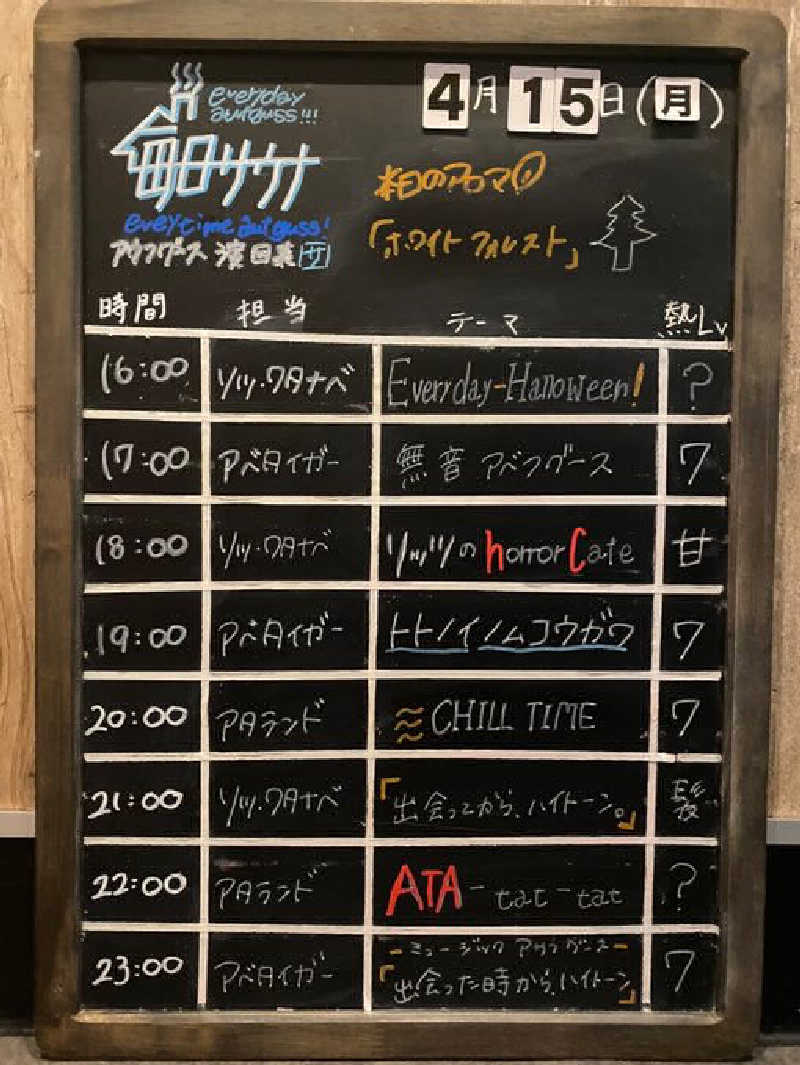 everyday
autguss!!!
毎日サウナ
everytime autguss!
アウフグース 濱田裏 サ
4月15日(月)
本日のアロマ
「ホワイトフォレスト」
時間 担当 テーマ 熱Lv
16:00 ソッツ・ワタナベ Everyday-Halloween! ?
17:00 アベタイガー 無音 アベフグース 7
18:00 ソッツ・ワタナベ ソッツの horror Cafe 甘
19:00 アベタイガー トトノイノムコウガワ 7
20:00 アタランド CHILL TIME 7
21:00 ソッツ・ワタナベ 「出会ってから、ハイトーン。」 髪
22:00 アタランド ATA-tat-tat ?
23:00 アベタイガー ーミュージック アウフグースー 7
「出会った時から、ハイトーン」